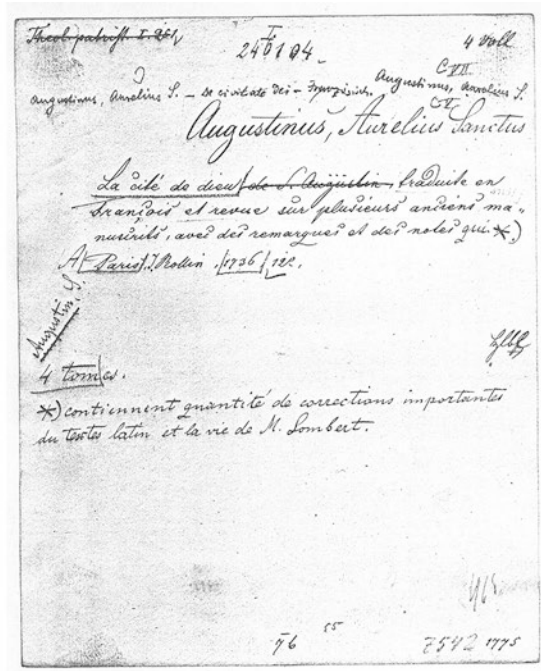 Theol. patrist. I. 261
24 I 01 04. 4 Voll
C VII
Augustinus, Aurelius S. — De civitate Dei — Französisch. Augustinus, Aurelius S.
C V.
Augustinus, Aurelius Sanctus
La cité de dieu de S. Augustin, traduite en
françois et revue sur plusieurs anciens ma-
nuscrits, avec des remarques et des notes qui. *)
A Paris J. Rollin. 1736 12°.
Augustin, S.
4 tomes.
*) contiennent quantité de corrections importantes
du textes latin et la vie de M. Lombert.
76 55 7542 1775